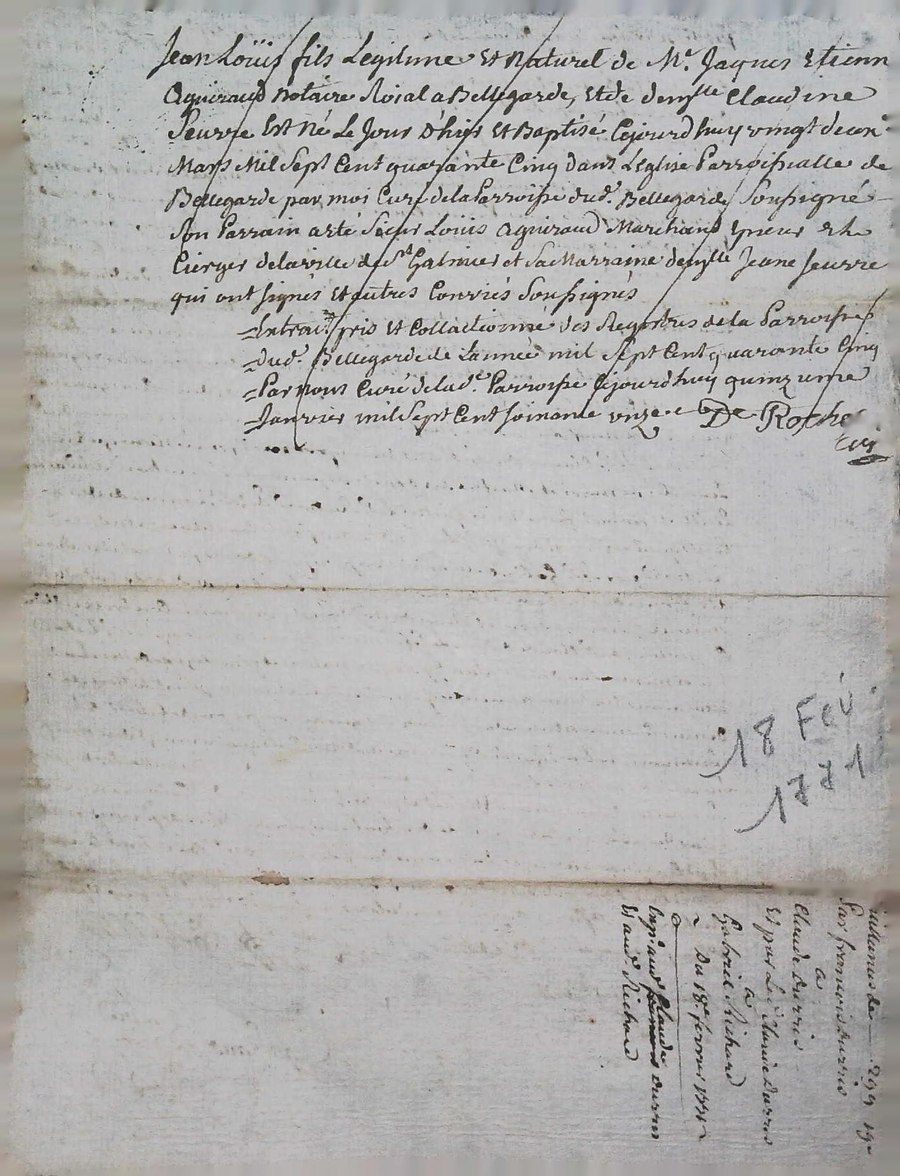 Jean Loüis fils Legitime Et Naturel de Mr. Jaques Etienn
Aguiraud Notaire Roial a Bellegarde, Et de demlle Claudine
Seurre Est Né Le Jour d'hier Et Baptisé Cejourd'huy vingt deux
Mars Mil Sept Cent quarante Cinq dans L'eglise Parroissialle de
Bellegarde par moi Curé de la Parroisse dud. Bellegarde Soussigné
Son Parrain a eté Sieur Louis Aguiraud Marchand
Cierger de la ville de St Galmier et Sa Marraine demlle Jeane Seurre
qui ont signés Et autres Conviés Soussignés
Extrait pris Et Collactionné des Registres de la Parroisse
Dud. Bellegarde de L'année mil Sept Cent quarante Cinq
Par Nous Curé de lad.e Parroisse Cejourd'huy quinzieme
Janvier mil Sept Cent soixante onze De Roche
Curé
18 Fev.
1771
299
Par francois Durris
a
Claude Durris
Et par Led. Claude Durris
a
Gabriel Richard
Du 18e fevrier 1771
a
Exp. aud. Claude Durris
Et aud. Richard